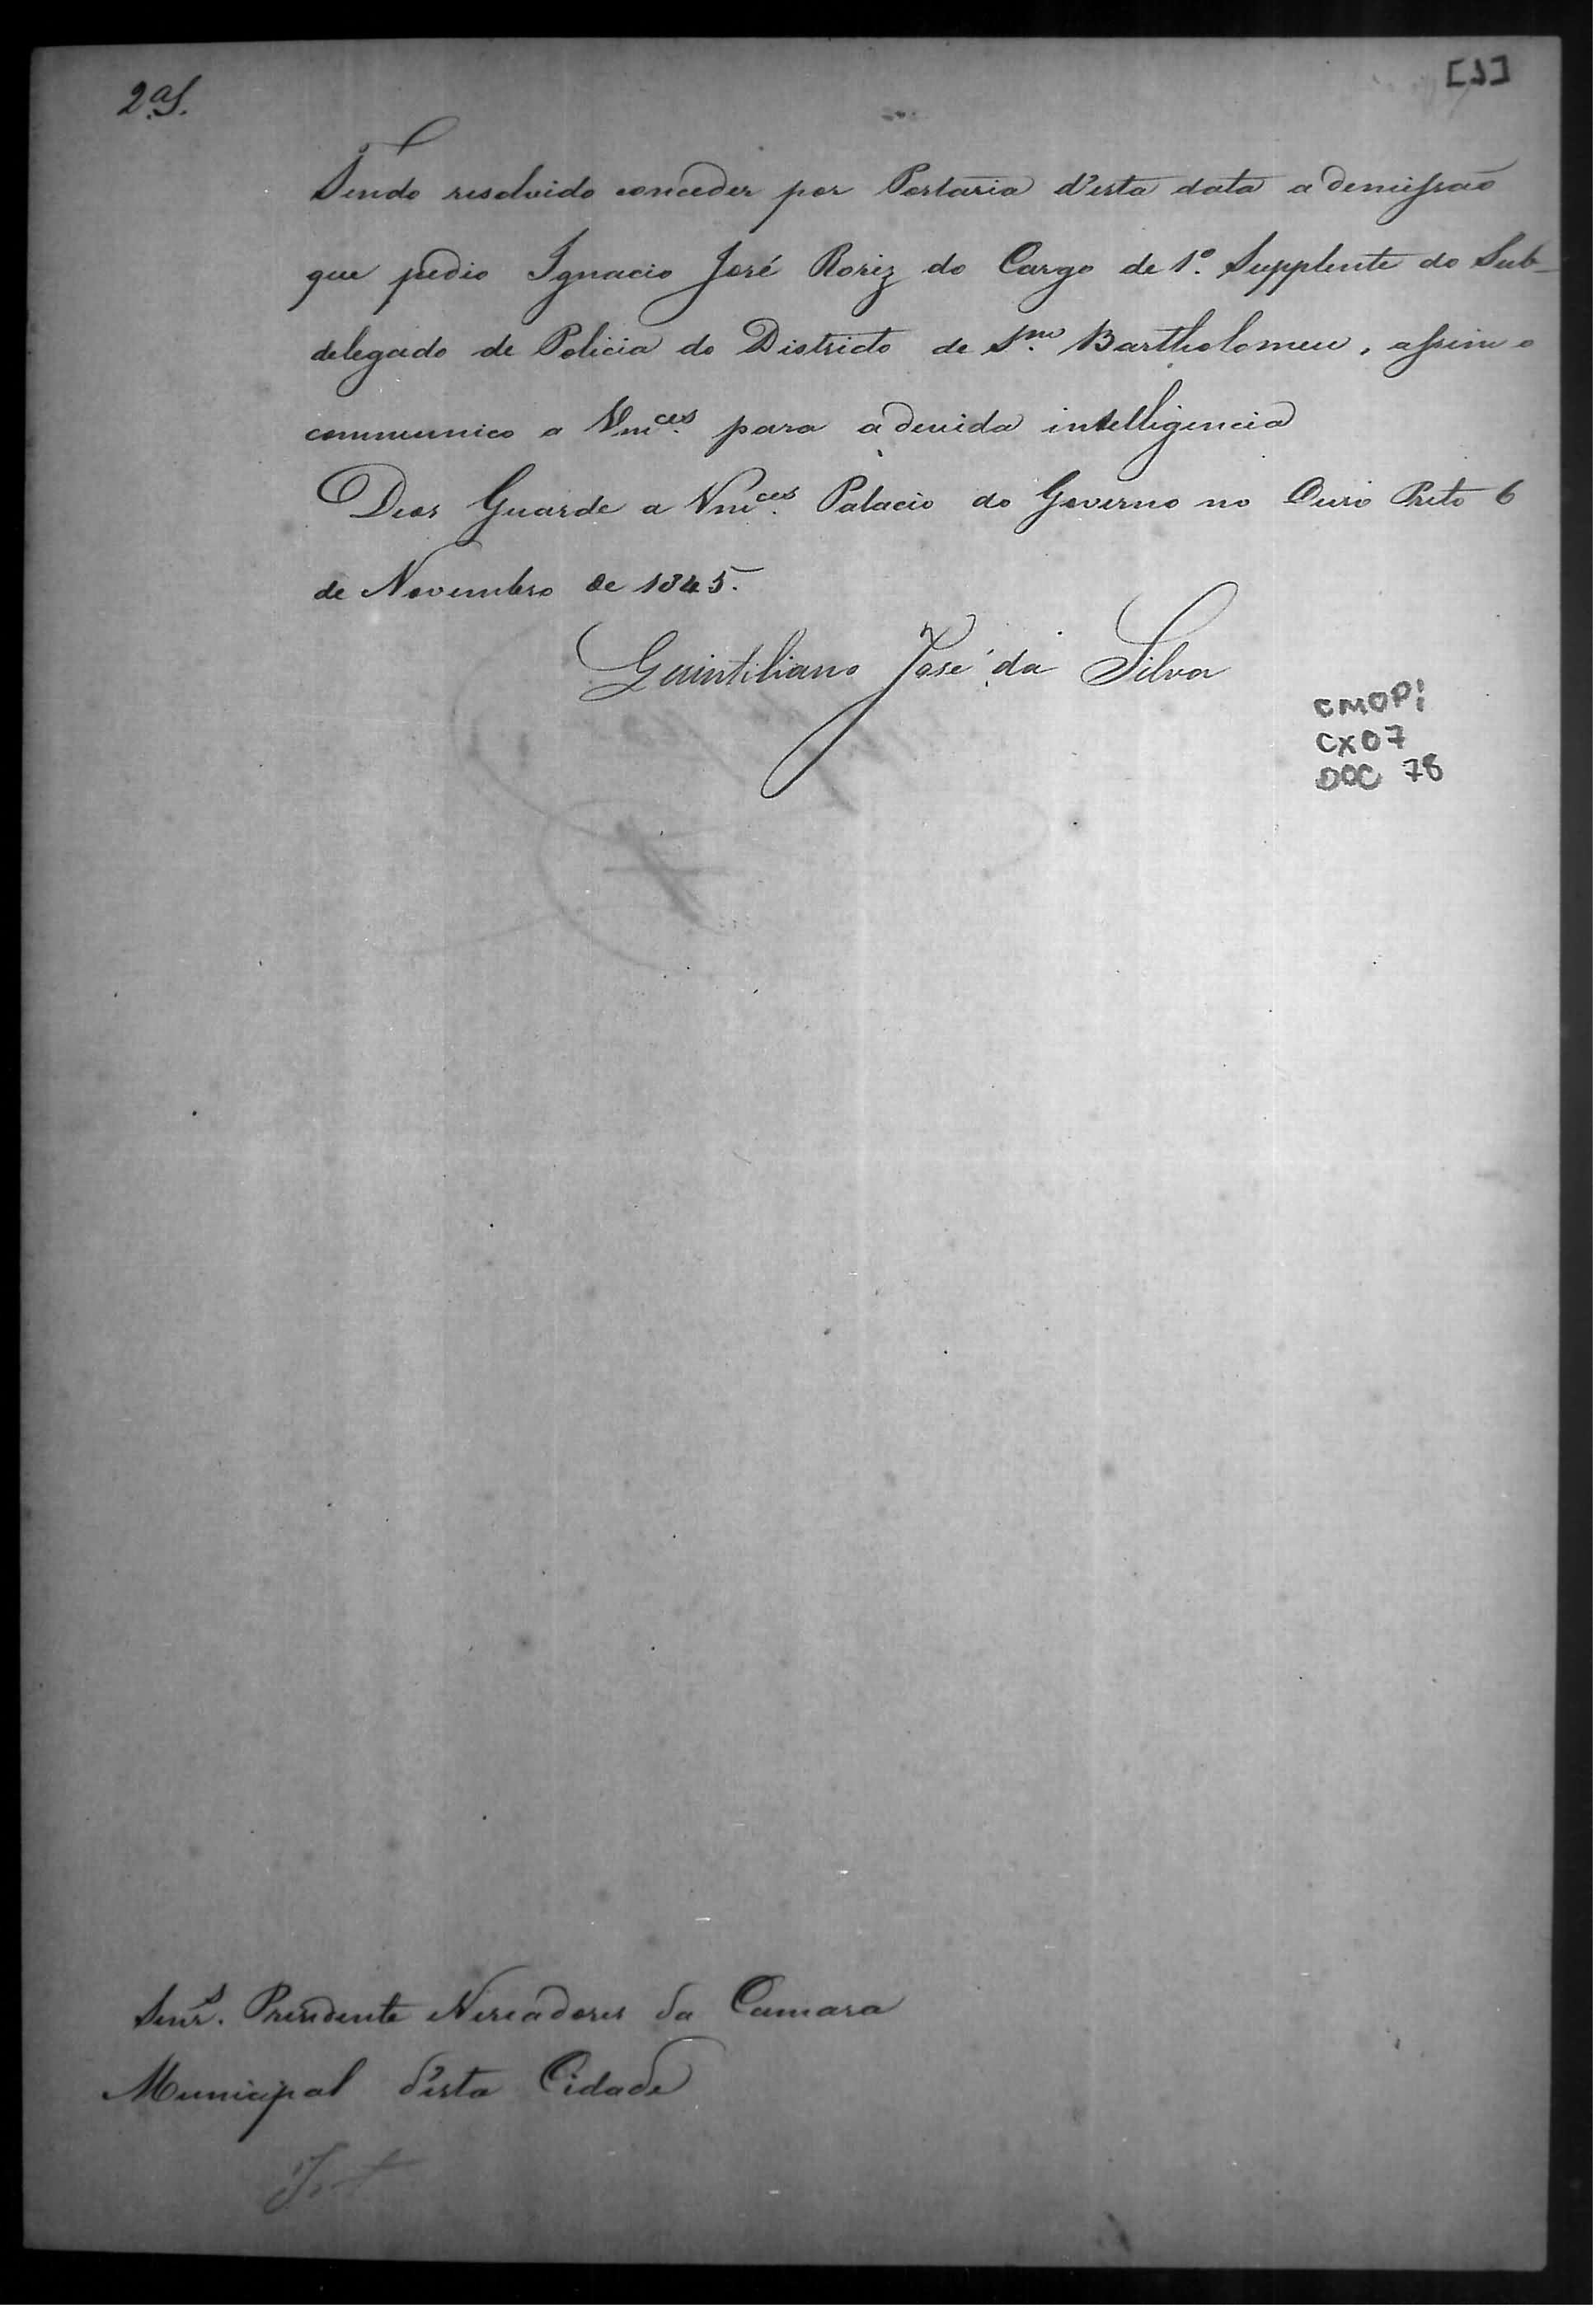 2.ª S.
[1]
Tendo resolvido conceder por Portaria d'esta data a demissaõ
que pedio Ignacio José Roriz do Cargo de 1.º Supplente do Sub-
delegado de Policia do Districto de S.m Bartholomeu, assim o
communico a Vm.ces para a devida intelligencia
Deos Guarde a Vm.ces Palacio do Governo no Ouro Preto 6
de Novembro de 1845.
Quintiliano José da Silva
CMOPI
CX07
DOC 78
Senr.s Presidente Vereadores da Camara
Municipal d'esta Cidade